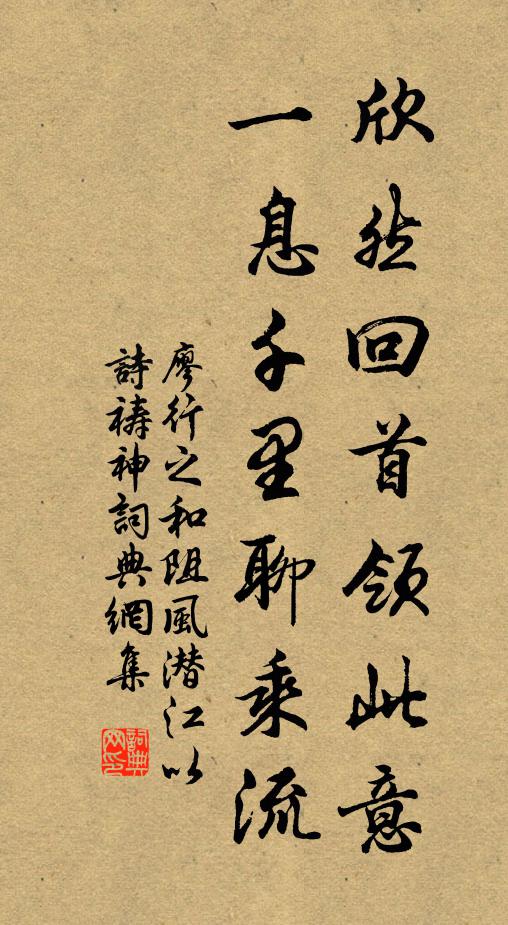 欣然回首領此意
一息千里聊乘流
廖行之和阻風潛江以
詩禱神詞典網集
詞典網印